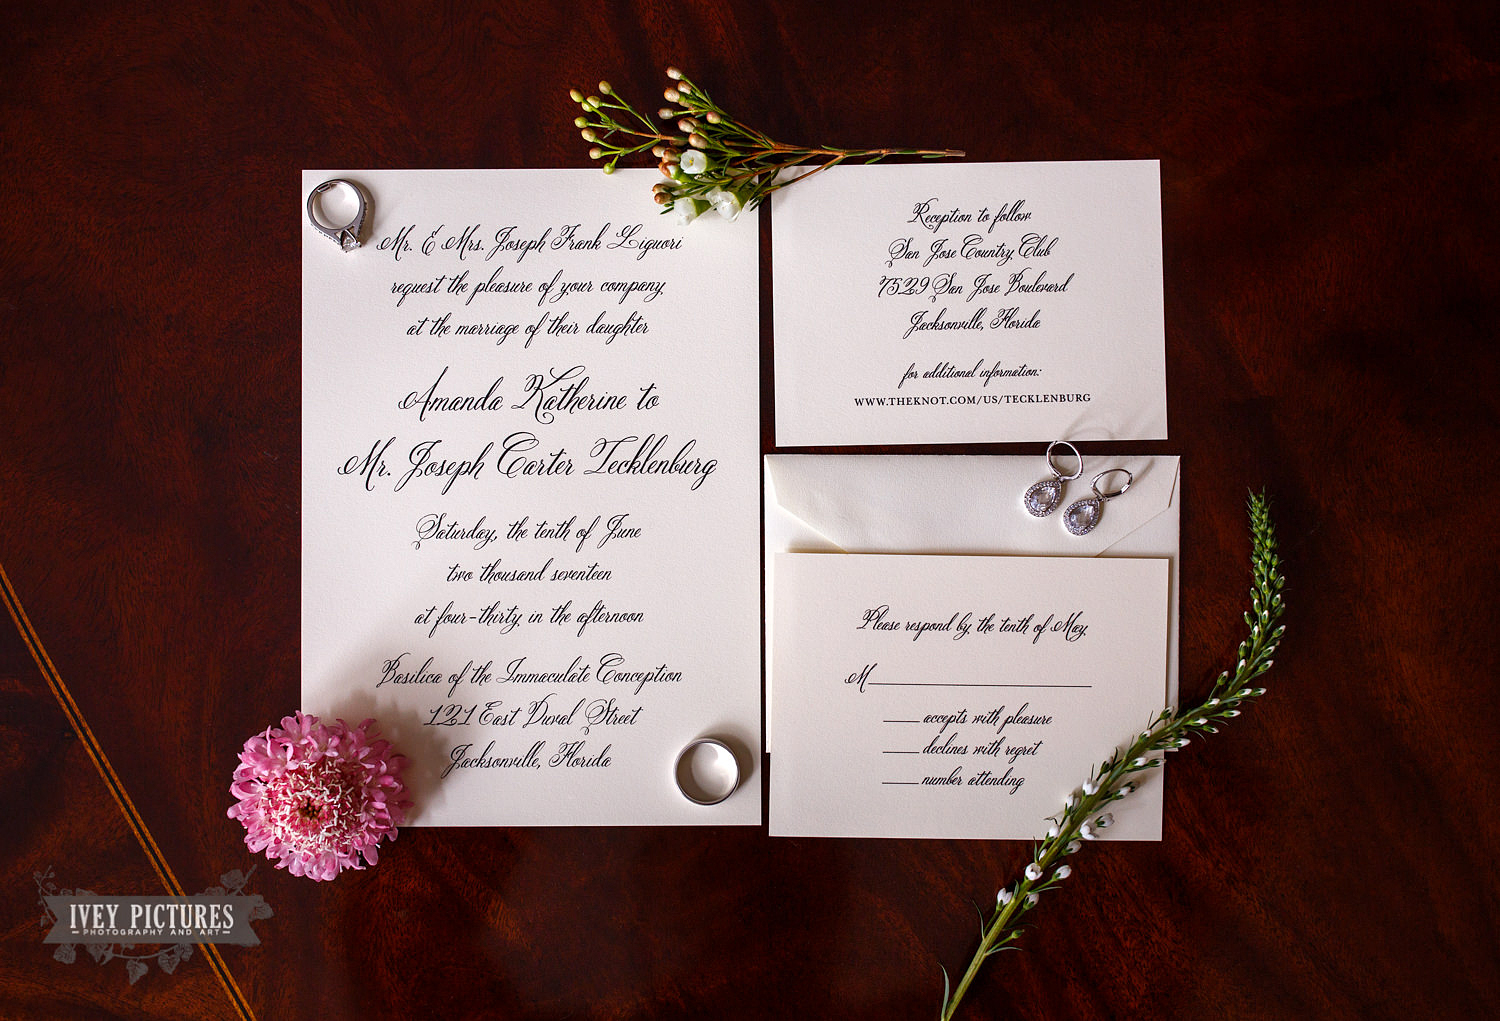 Mr. & Mrs. Joseph Frank Liguori
request the pleasure of your company
at the marriage of their daughter
Amanda Katherine to
Mr. Joseph Carter Tecklenburg
Saturday, the tenth of June
two thousand seventeen
at four-thirty in the afternoon
Basilica of the Immaculate Conception
121 East Duval Street
Jacksonville, Florida
Reception to follow
San Jose Country Club
7529 San Jose Boulevard
Jacksonville, Florida
for additional information:
WWW.THEKNOT.COM/US/TECKLENBURG
Please respond by the tenth of May
M
accepts with pleasure
declines with regret
number attending
IVEY PICTURES
PHOTOGRAPHY AND ART